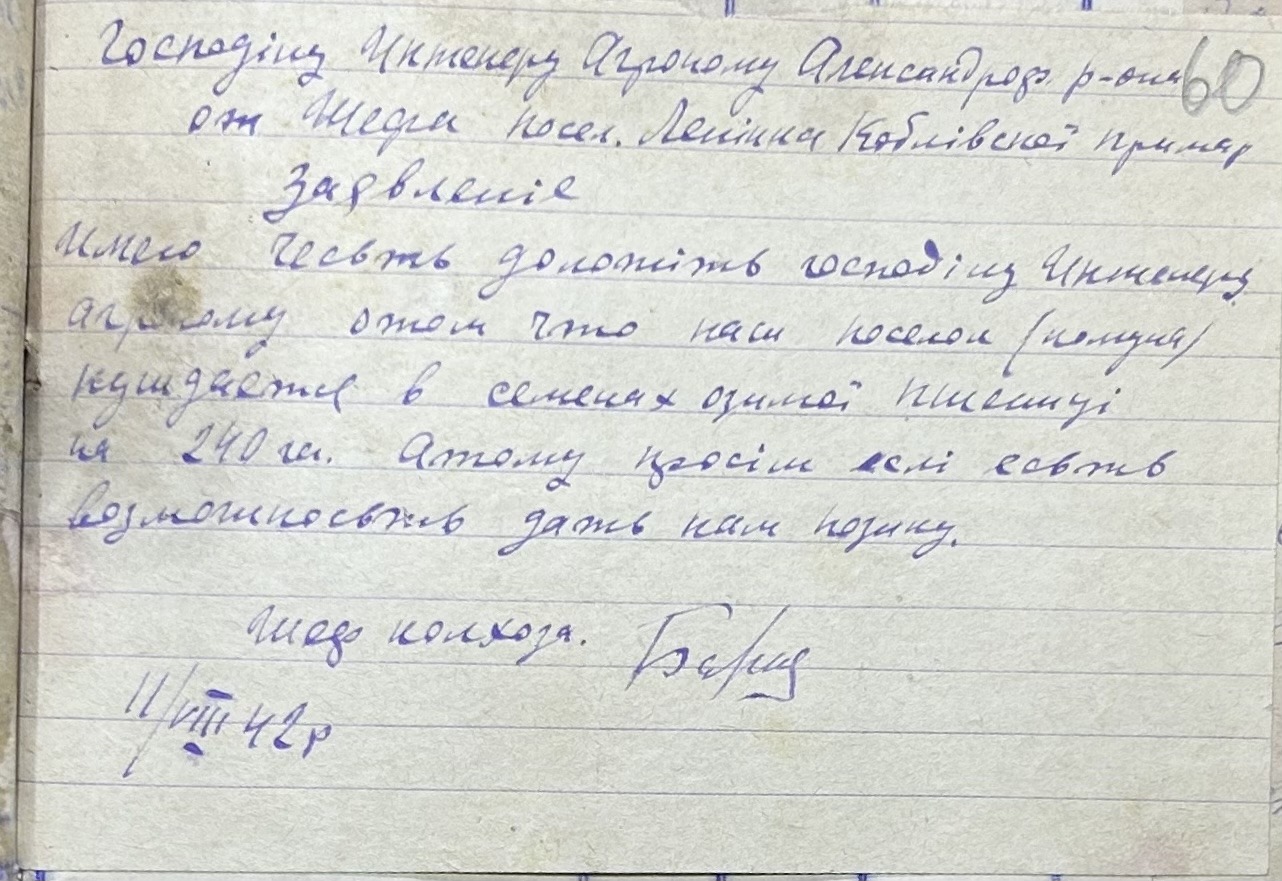 Господіну Инженеру Агроному Александров. р-она 60
от Шефа посел. Ленінка Коблівскої примар
Заявленіе
Имею чесьть доложіть господіну Инженеру
агроному отом что наш поселок (комуна)
нуждается в семенах озимої пшениці
на 240 га. Атому просім еслі есьть
возможносьть дать нам позику.
Шеф колхоза.
11/VIII 42р